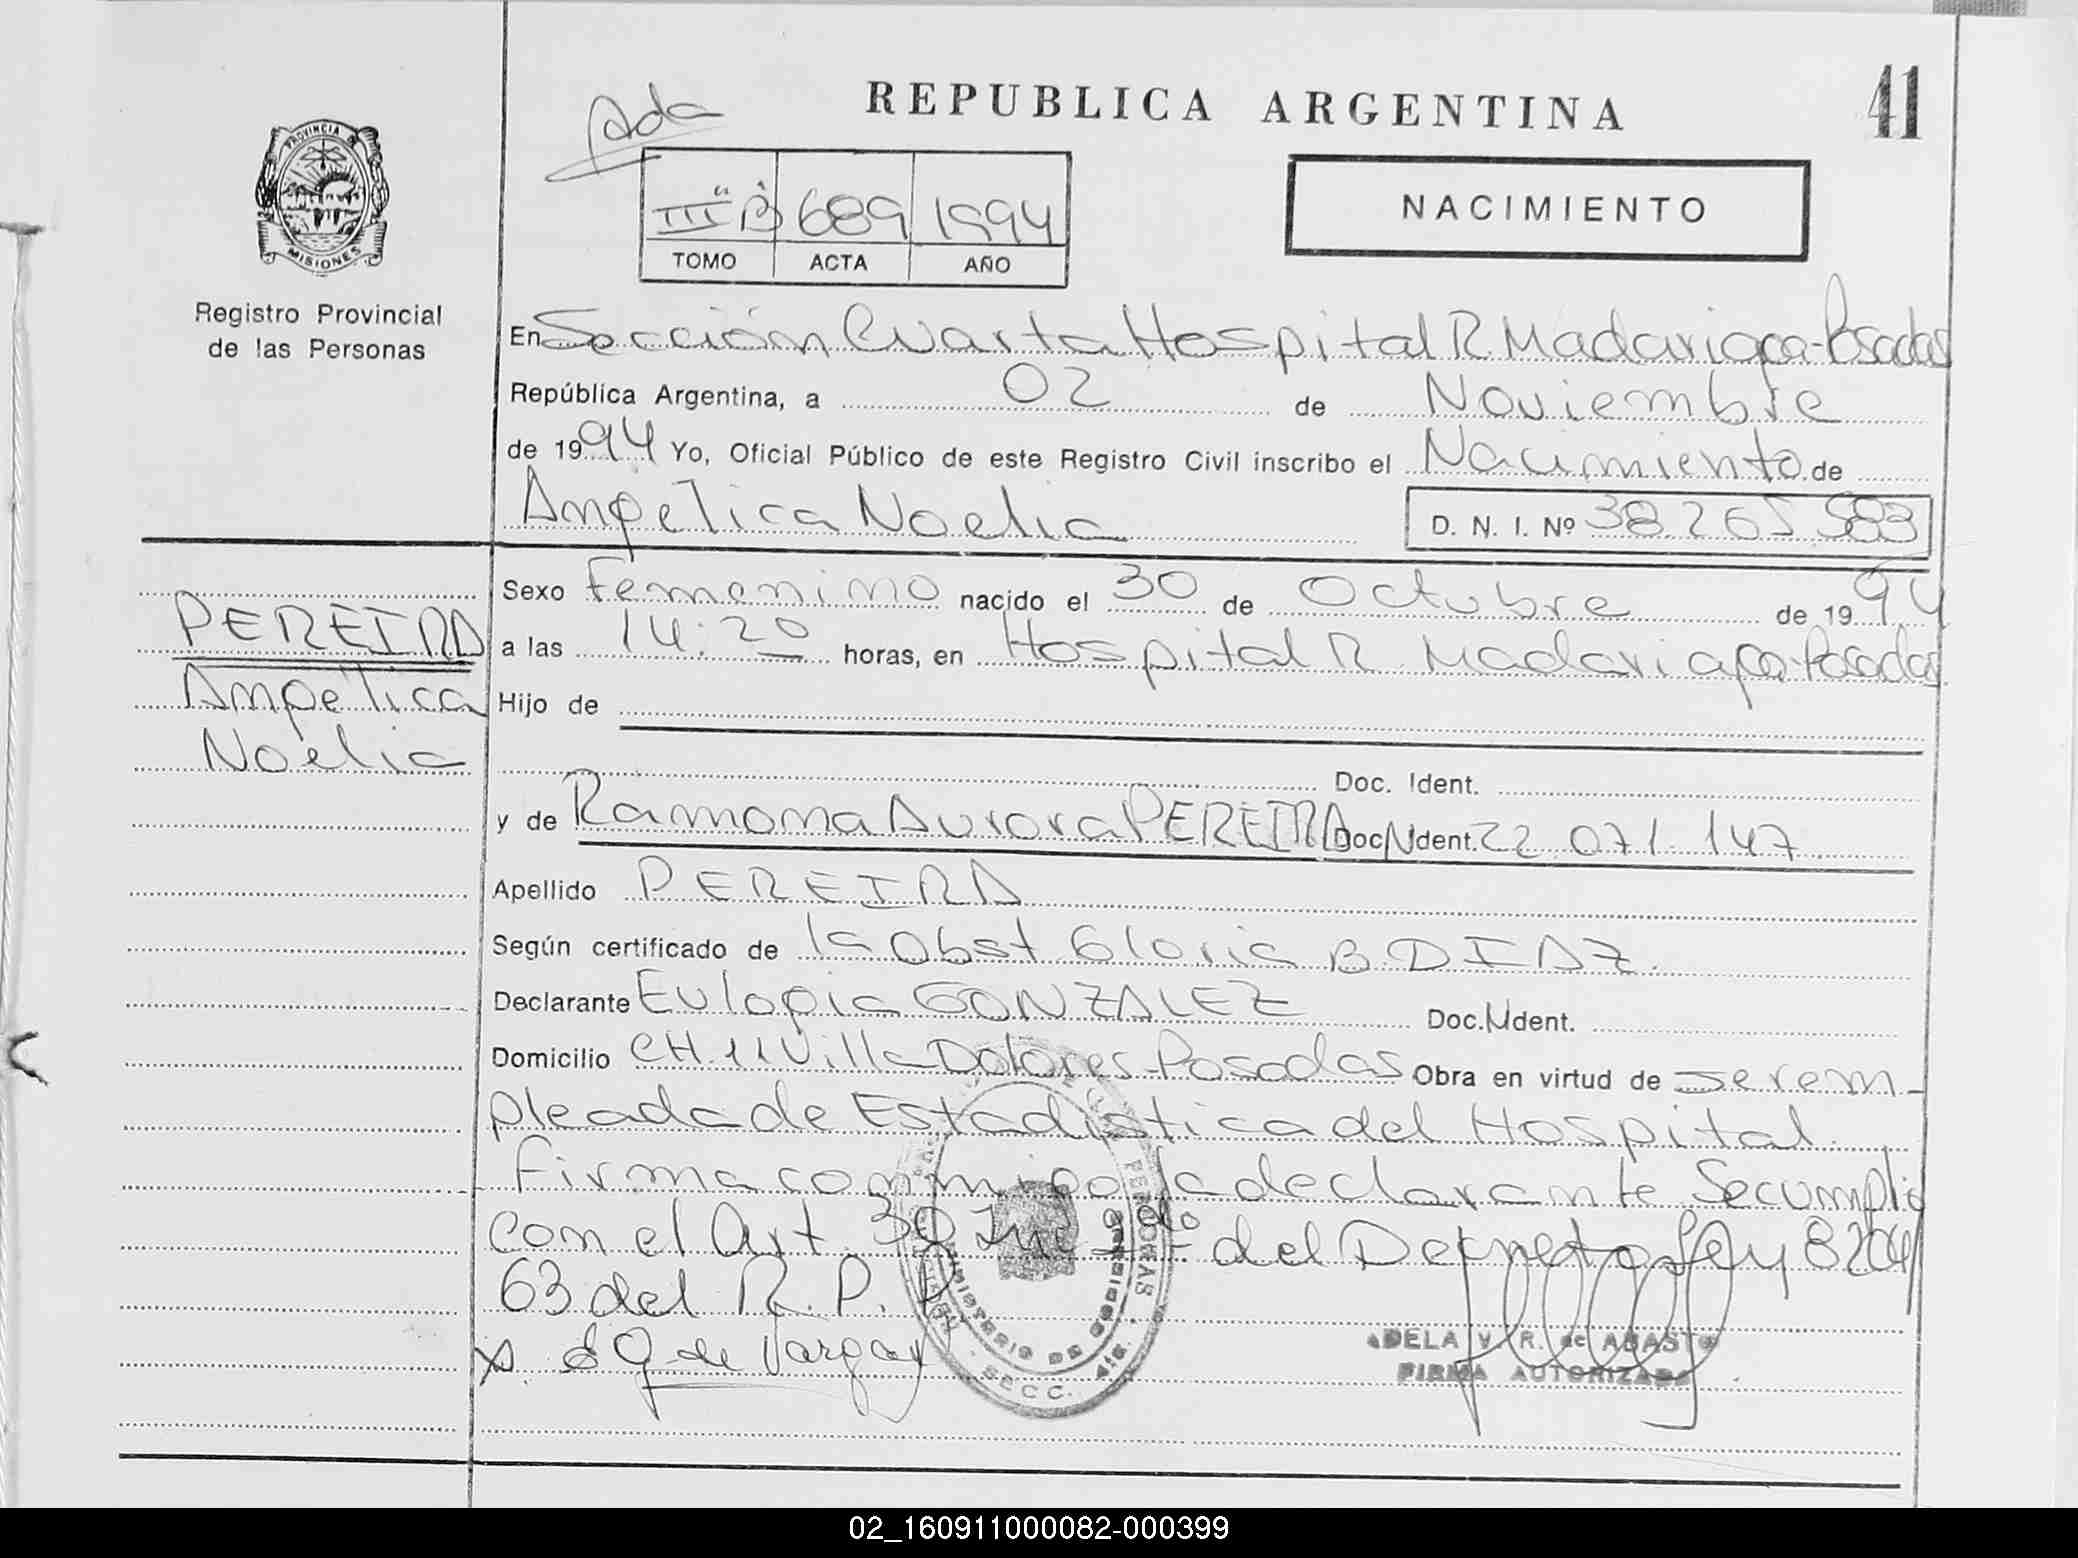 REPUBLICA ARGENTINA
41
Ada
III "B" 689 1994
TOMO ACTA AÑO
NACIMIENTO
PROVINCIA DE
MISIONES
Registro Provincial
de las Personas
En Sección Cuarta Hospital R. Madariaga-Posadas
República Argentina, a 02 de Noviembre
de 1994 Yo, Oficial Público de este Registro Civil inscribo el Nacimiento de
Angélica Noelia D. N. I. Nº 38.265.583
PEREIRA
Angélica
Noelia
Sexo Femenino nacido el 30 de Octubre de 1994
a las 14:20 horas, en Hospital R. Madariaga-Posadas
Hijo de
Doc. Ident.
y de Ramona Aurora PEREIRA Doc. Ident. 22 071 147
Apellido PEREIRA
Según certificado de la Obst Gloria B DIAZ.
Declarante Eulogia GONZALEZ Doc. Ident.
Domicilio CH.11 Villa Dolores-Posadas Obra en virtud de ser em-
pleada de Estadística del Hospital.
Firma conmigo la declarante Se cumplió
con el Art. 30 del Decreto Ley 8204/
63 del R.P.P
de Vargas
PERSONAS
MINISTERIO DE GOBIERNO
SECC.
ADELA V. R. de ABASTO
FIRMA AUTORIZADA
02_160911000082-000399